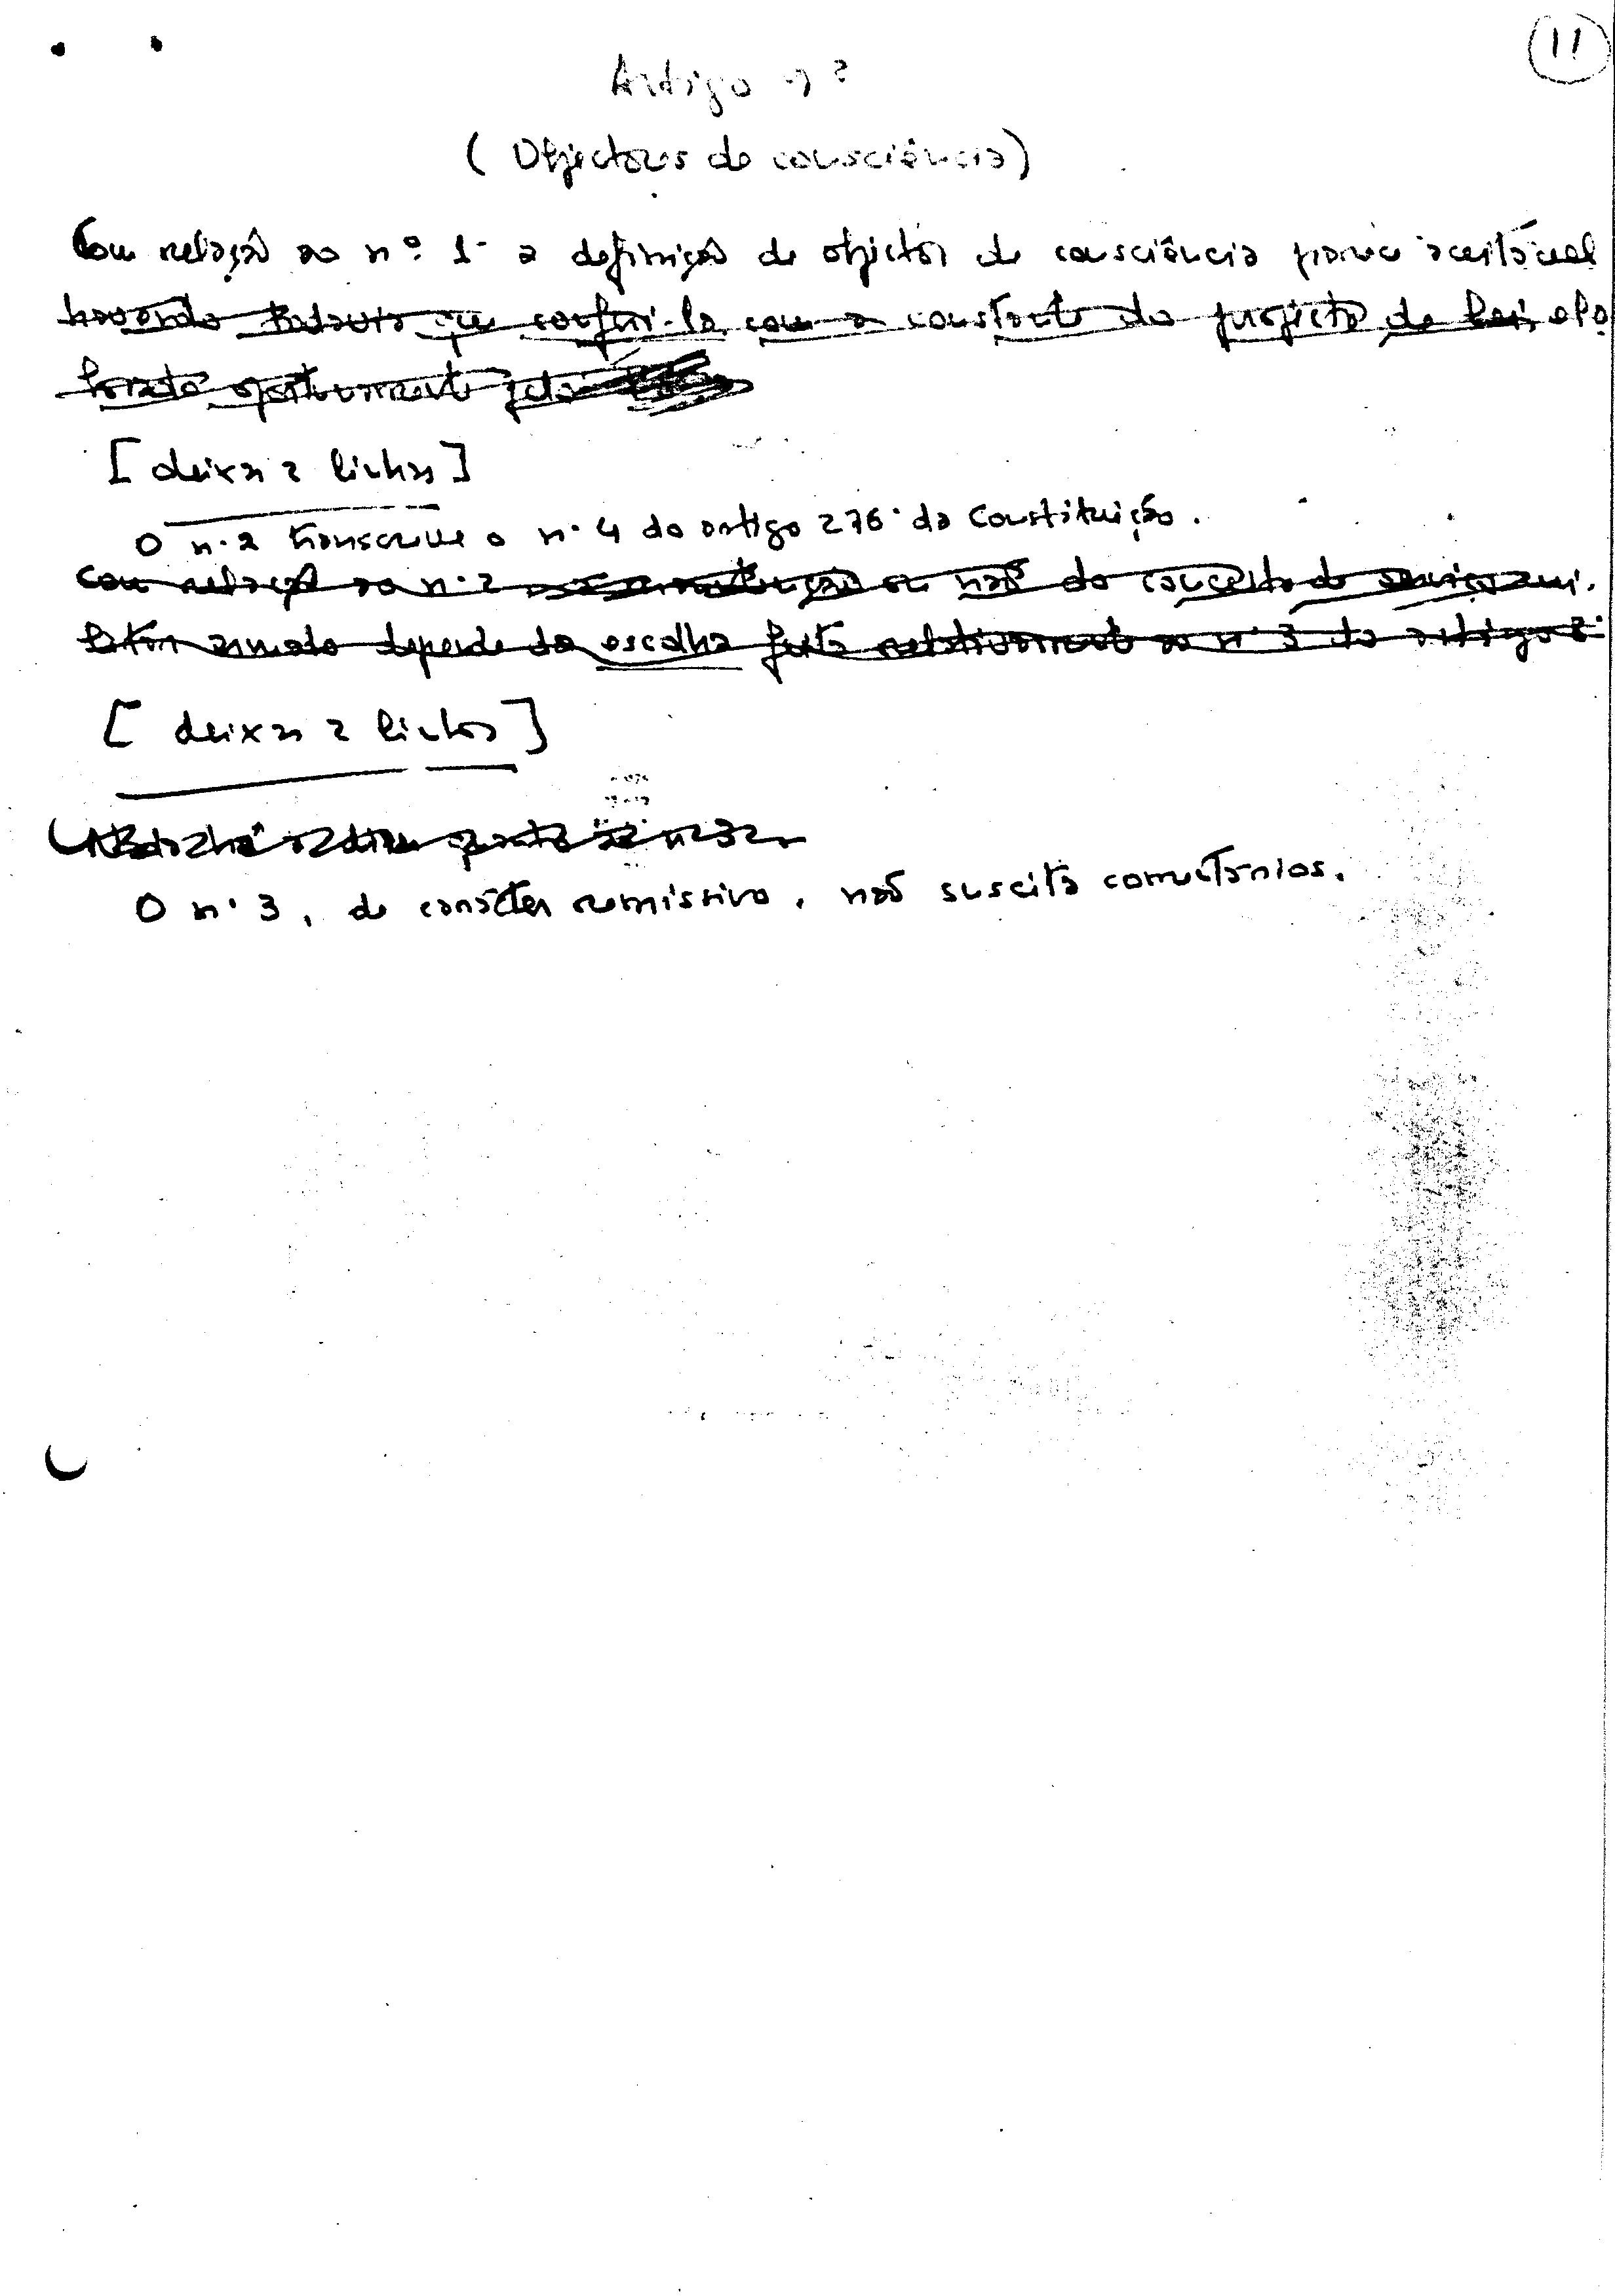 11
Artigo 9º
(Objectores de consciência)
Com relação ao nº 1 a definição de objector de consciência parece aceitável
havendo todavia que conferi-la com a constante do projecto de lei ela
borado oportunamente pelo
[deixar 2 linhas]
O nº 2 transcreve o nº 4 do artigo 276º da Constituição.
Com relação ao nº 2 a manutenção ou não do conceito de serviço mi.
litar armado depende da escolha feita relativamente ao nº 3 do artigo 8º
[deixar 2 linhas]
O nº 3, de carácter remissivo, não suscita comentários.